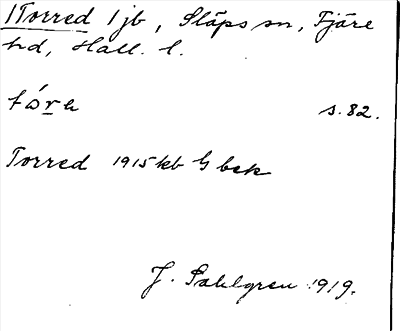 1 Torred 1 jb, Släps sn, Fjäre
hd, Hall. l.
tó̱re s. 82.
Torred 1915 kb G bek
J. Sahlgren 1919.